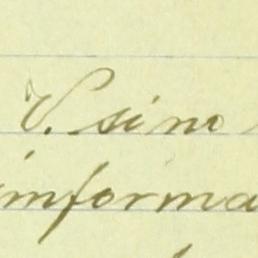 V. sino
informa